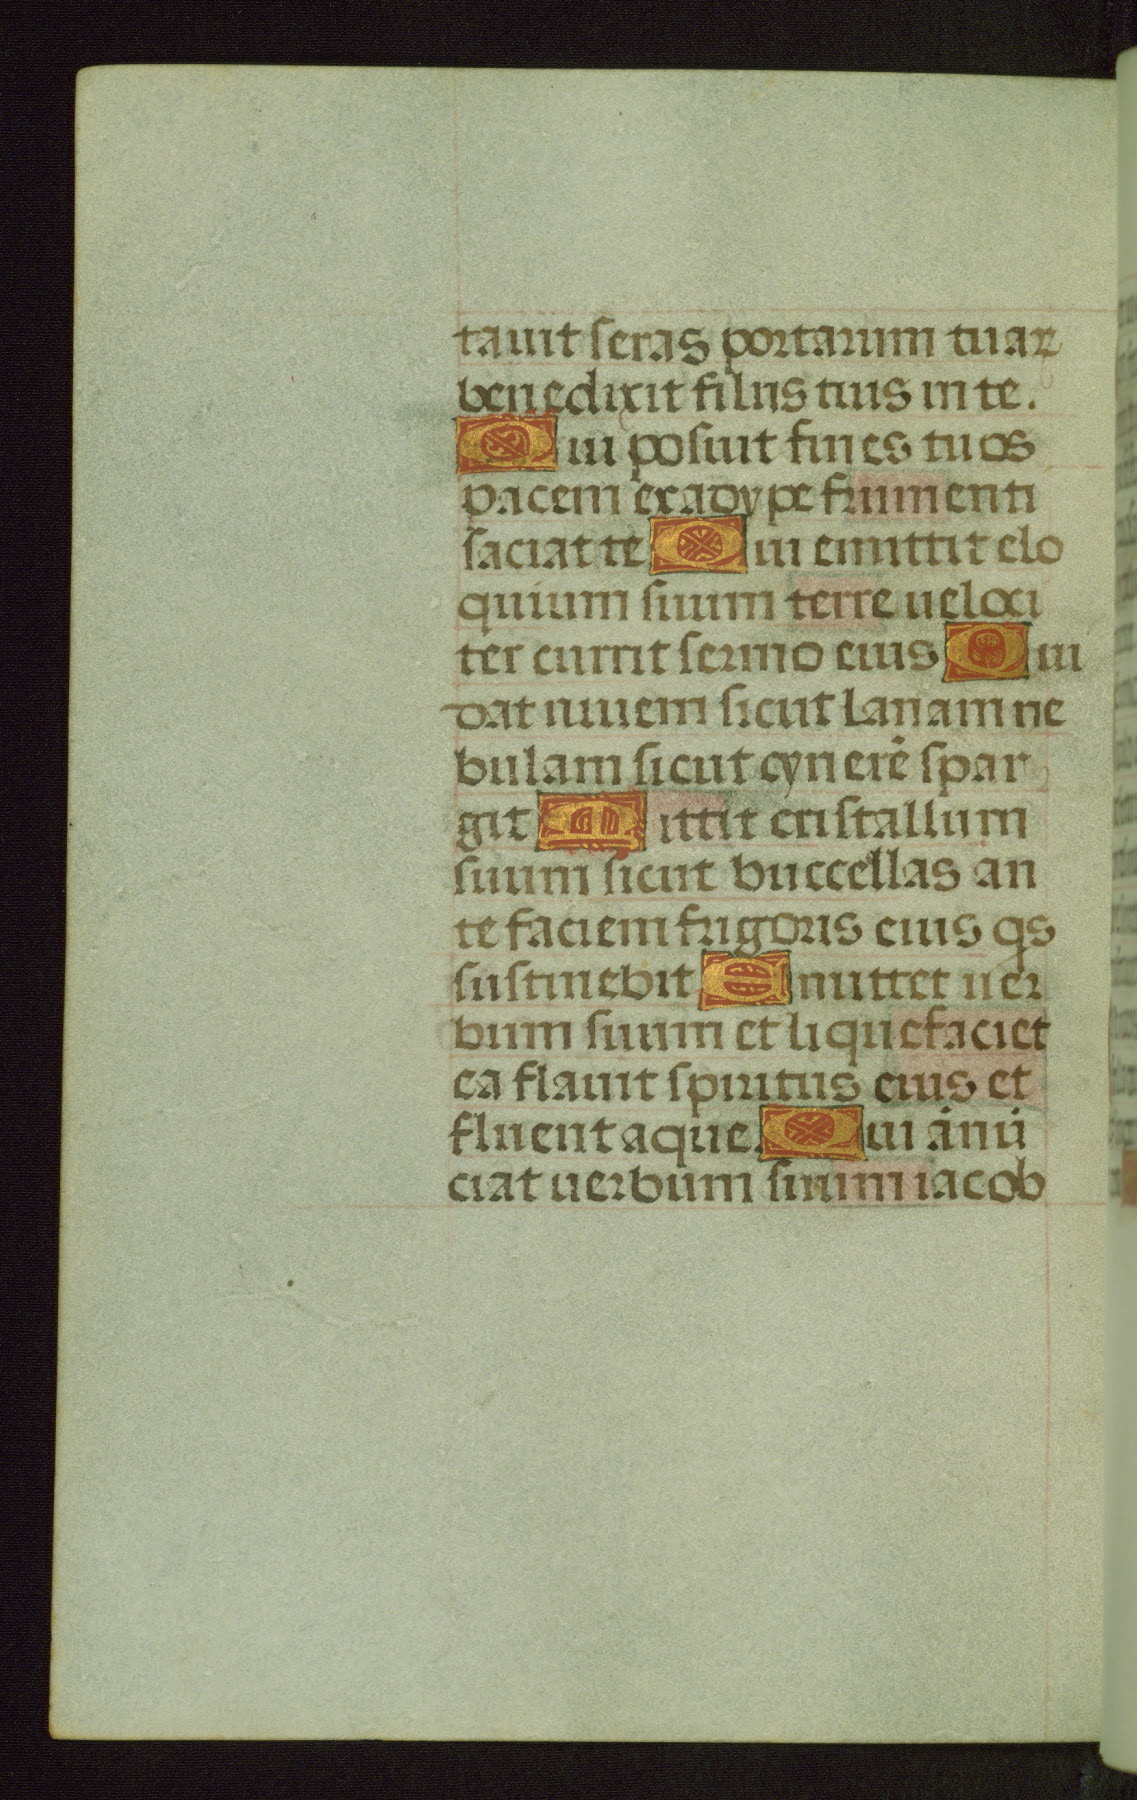 tauit seras portarum tuaꝝ
benedixit filiis tuis in te.
Qui posuit fines tuos
pacem ex adype frumenti
saciat te Qui emittit elo
quium suum terre ueloci
ter currit sermo eius Qui
dat niuem sicut lanam ne
bulam sicut cynerē spar
git Mittit cristallum
suum sicut buccellas an
te faciem frigoris eius qs
sustinebit Emittet uer
bum suum et liquefaciet
ea flauit spiritus eius et
fluent aque. Qui ānū
ciat uerbum suum iacob